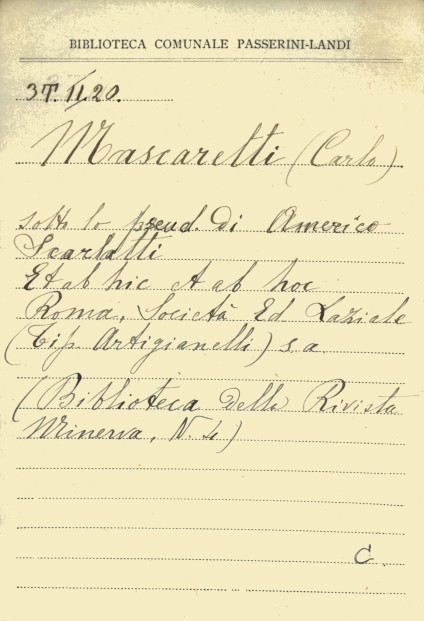 BIBLIOTECA COMUNALE PASSERINI-LANDI
3T. II. 20.
Mascaretti (Carlo)
sotto lo pseud. di Americo
Scarlatti
Et ab hic et ab hoc
Roma, Società Ed Laziale
(Tip Artigianelli) s. a.
(Biblioteca della Rivista
Minerva, N. 4)
C.